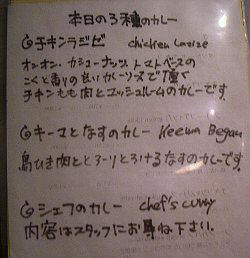 本日の3種のカレー
◎チキンラジゼ chicken Lazize
オニオン・カシューナッツ トマトベースの
こくと香りの良いカレーソースで頂く
チキンもも肉とマッシュルームのカレーです。
◎キーマとなすのカレー Keema Began
鳥ひき肉ととろ〜りとろけるなすのカレーです。
◎シェフのカレー chef's curry
内容はスタッフにお尋ね下さい。